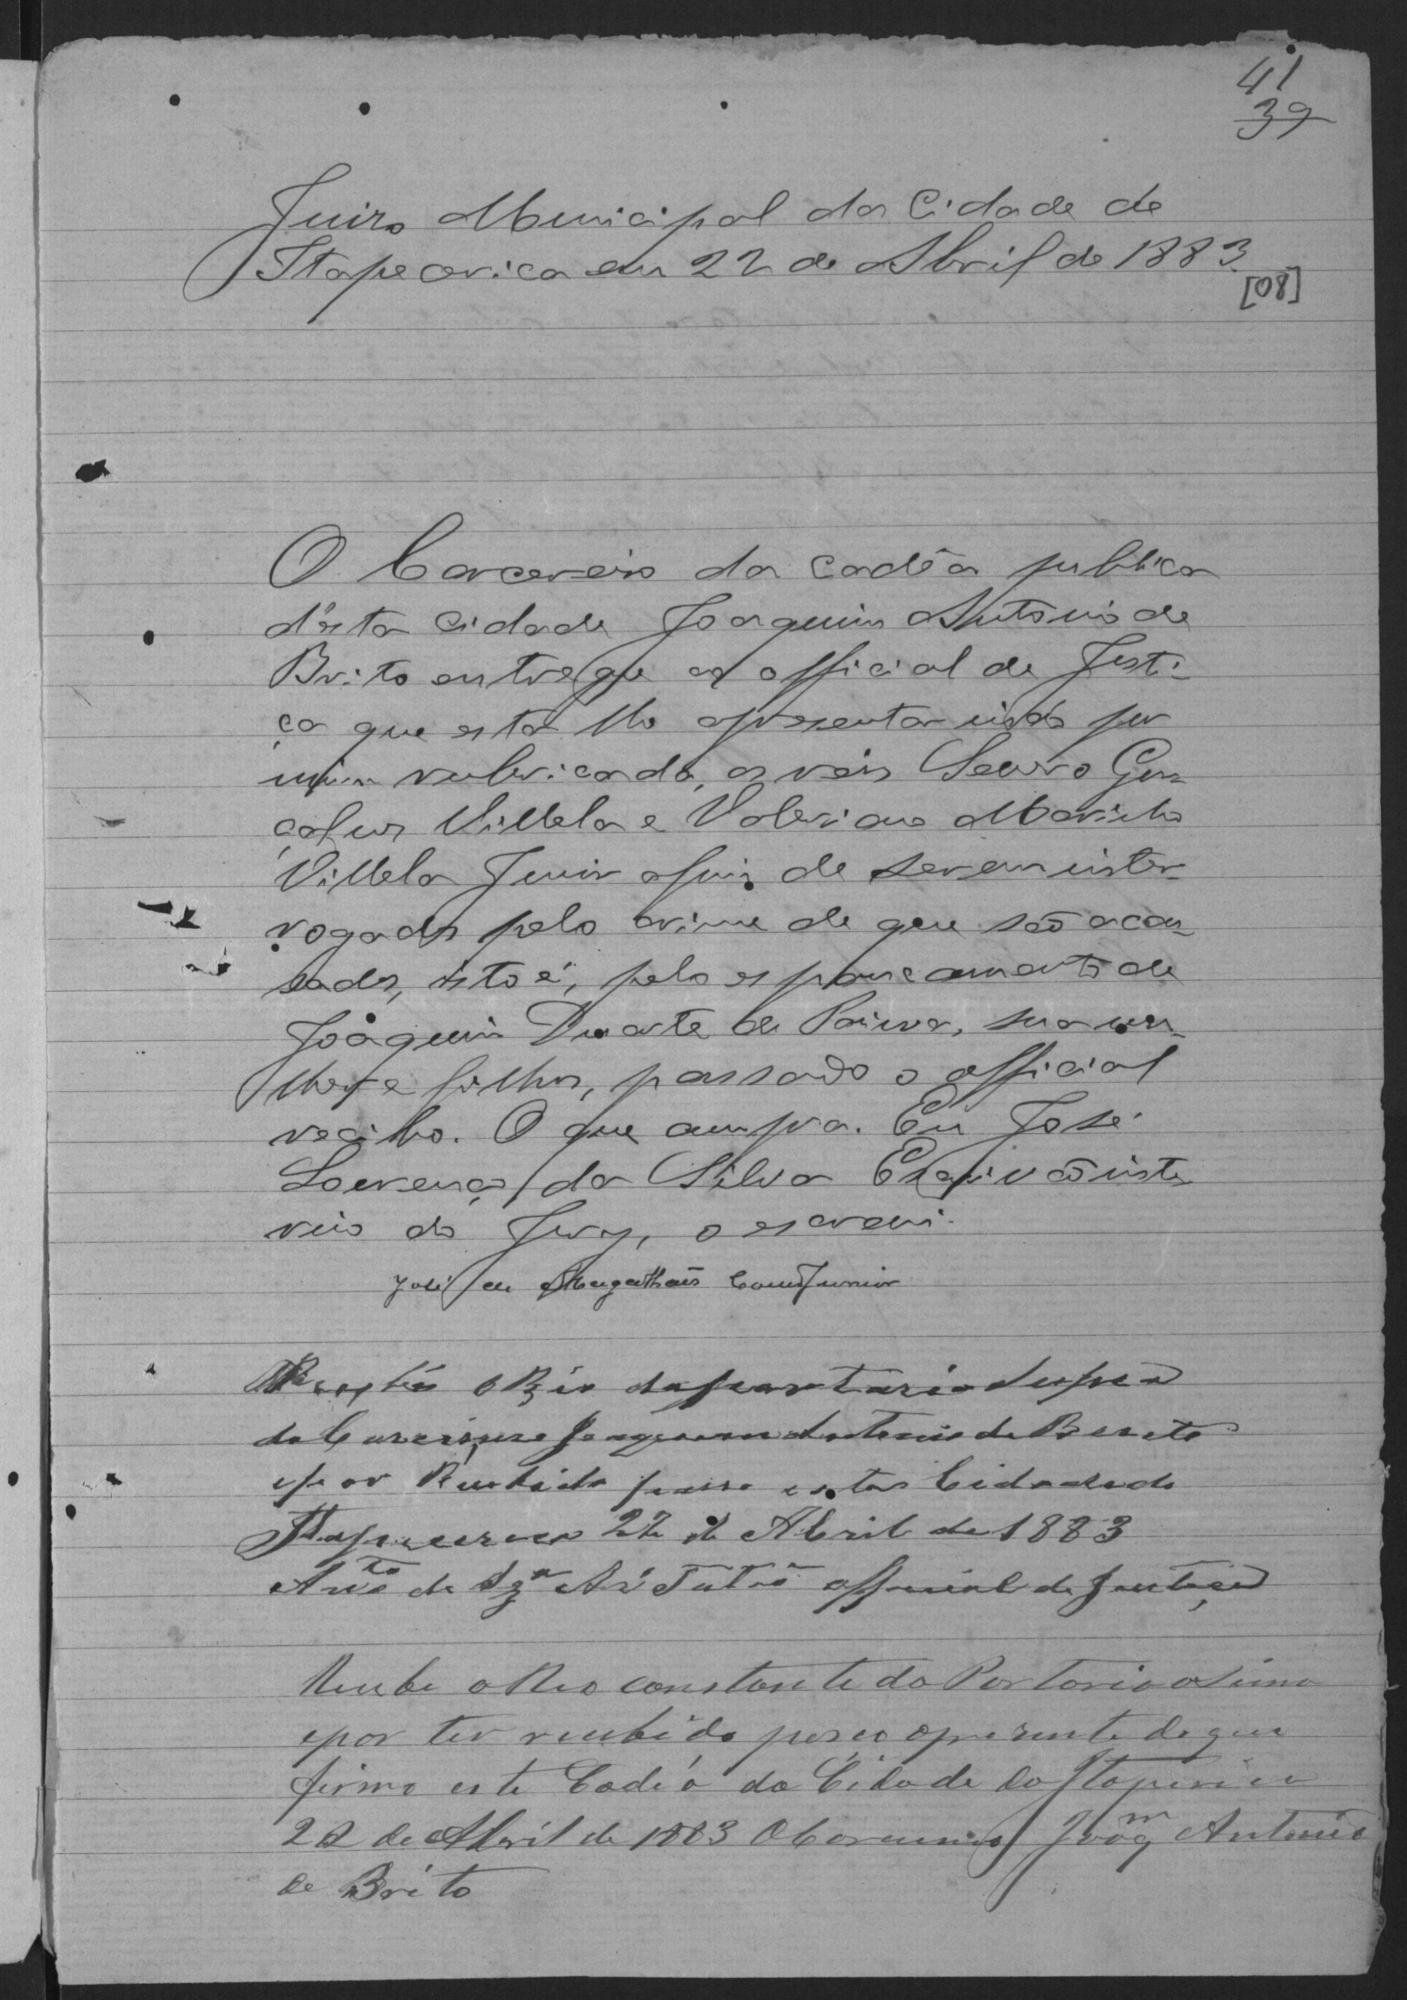 41
39
Juizo Municipal da Cidade de
Itapecerica em 22 de Abril de 1883
[08]
O Carcereiro da cadêa publica
d'esta cidade Joaquim Antonio de
Brito entregue ao official de Justi-
ça que esta lhe apresentar indo por
mim rubricada, os réos Severo Gon
çalves Villela e Valeriano Marinho
Villela Junior afim de serem inter-
rogados pelo crime de que são acu-
sados, isto é, pelo espancamento de
Joaquim Duarte de Paiva, sua mu-
lher e filhos, passado o official
recibo. O que cumpra. Eu José
Lourenço da Silva Escrivão inte
rino do Jury, o escrevi.
José de Magalhães Junior
Recebi o Réo da portaria supra
do Carcereiro Joaquim Antonio de Brito
e por Recebido passo esta Cidade de
Itapecerica 22 de Abril de 1883
official de Justiça
Recebi o Reo constante da Portaria asima
e por ter recebido paço o prezente de que
firmo este Cadêa da Cidade da Itapecerica
22 de Abril de 1883 O Carcereiro Joaqm Antonio
de Brito